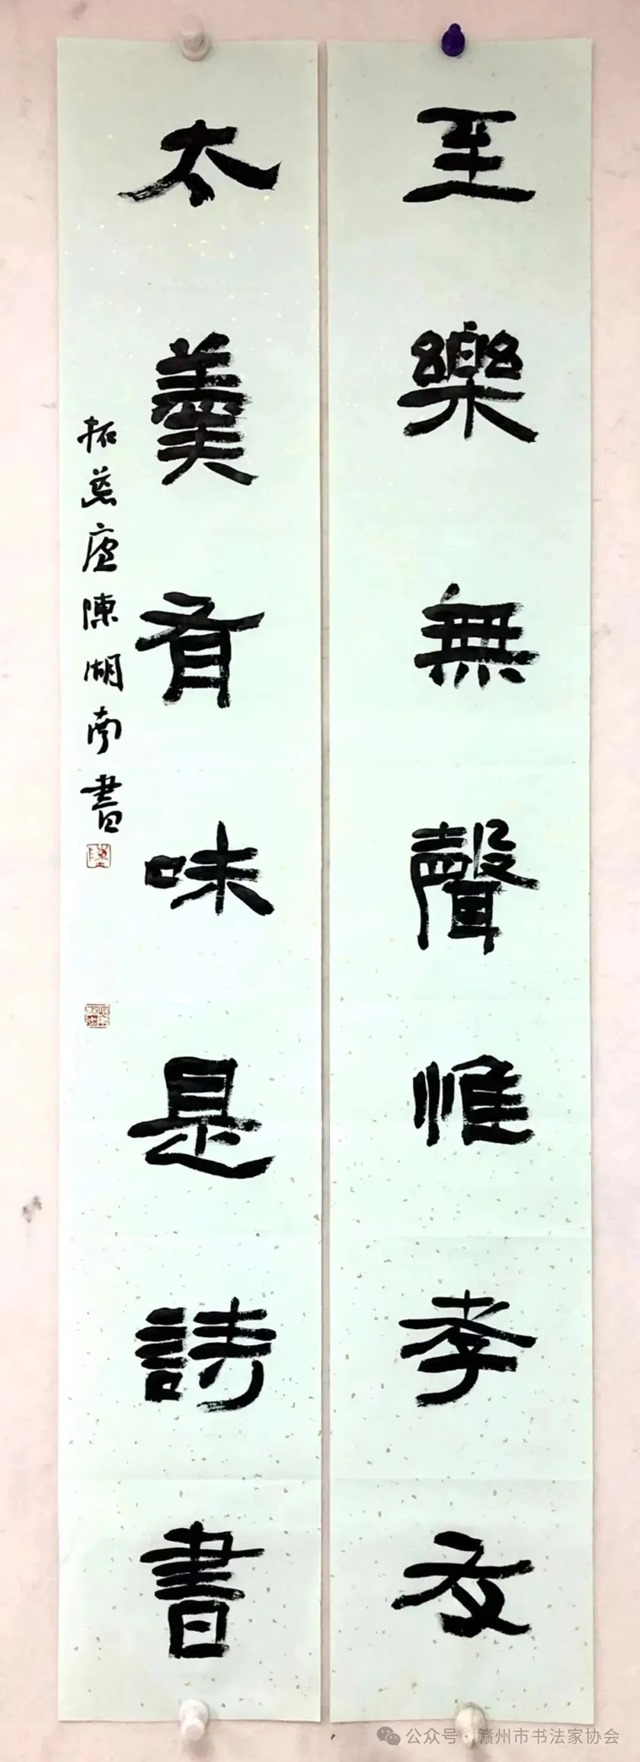 至樂無聲惟孝友
太羹有味是詩書
拓慈廬陳湖南書
公众号·赣州市书法家协会